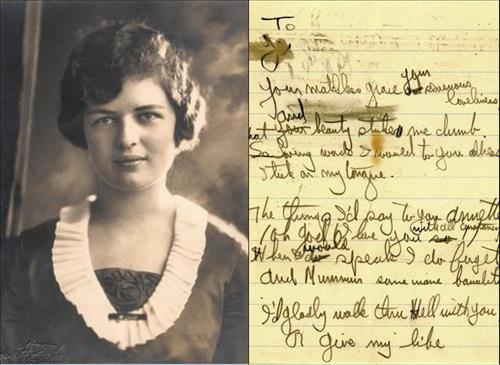 To
J.
Your matchless grace your
sensuous
loveliness
And
that your beauty strikes me dumb.
So loving words I would to you address
Stick on my tongue.
The things I'd say to you
(oh God! I love you so) with all
When I would speak I do forget
And Murmur some inane banality
I'd gladly walk thru Hell with you
Or give my life